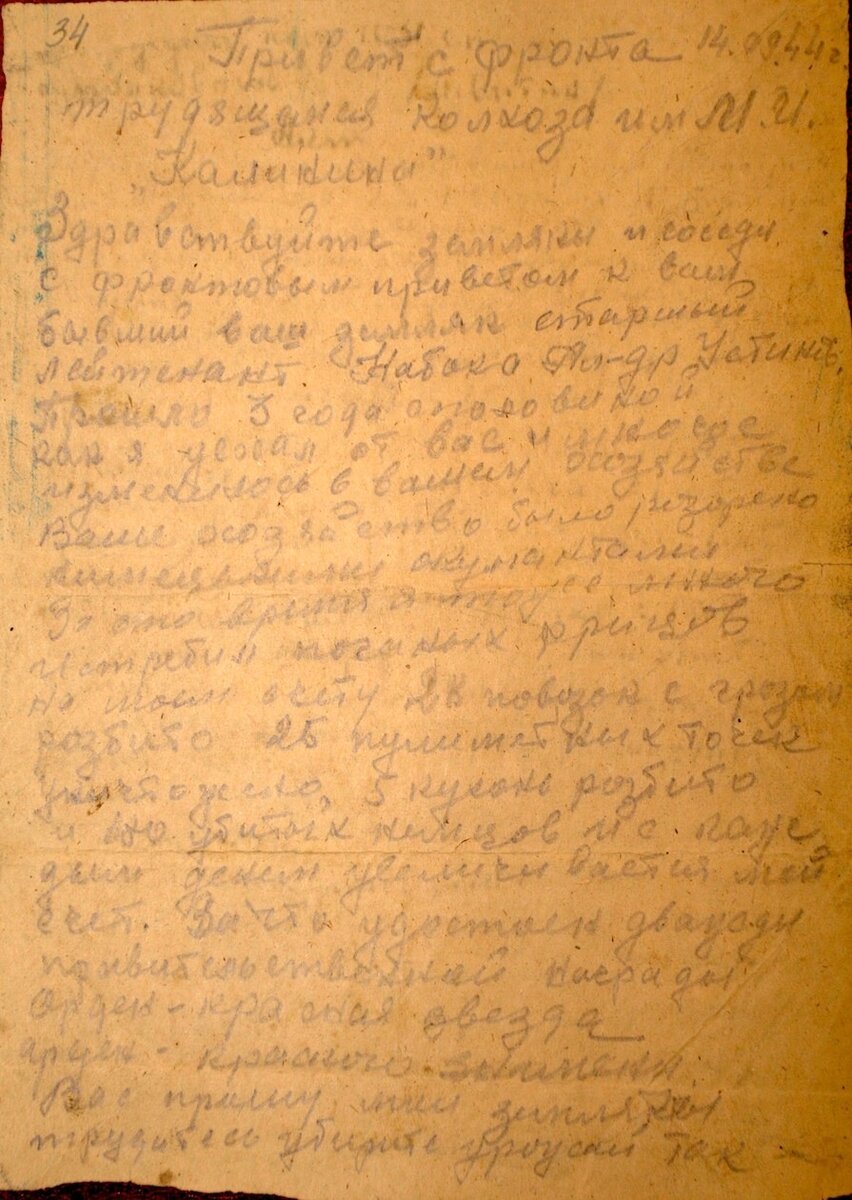 34
Привет с фронта 14.09.44 г
трудящимся колхоза им М.И.
„Калинина"
Здравствуйте земляки и соседи
с фронтовым приветом к вам
бывший ваш земляк старший
лейтенант Набока Ал-др Устинъ.
Прошло 3 года споловиной
как я уехал от вас и много
изменилось в вашем хозяйстве
Ваше хозяйство было розорено
окупантами
За ето время я тоже много
истребил поганых фрицов
на моем счету повозок с грозом
розбито 25 пулиметных точек
уничтожено, 5 кухонь розбито
и убитых немцов и с каж
дым денем увеличивается мой
счет. За что удостоен дважди
правительственной награды
Орден - красная звезда
орден - красного знамени
Вас прошу мои земляки
трудитесь убирите урожай так